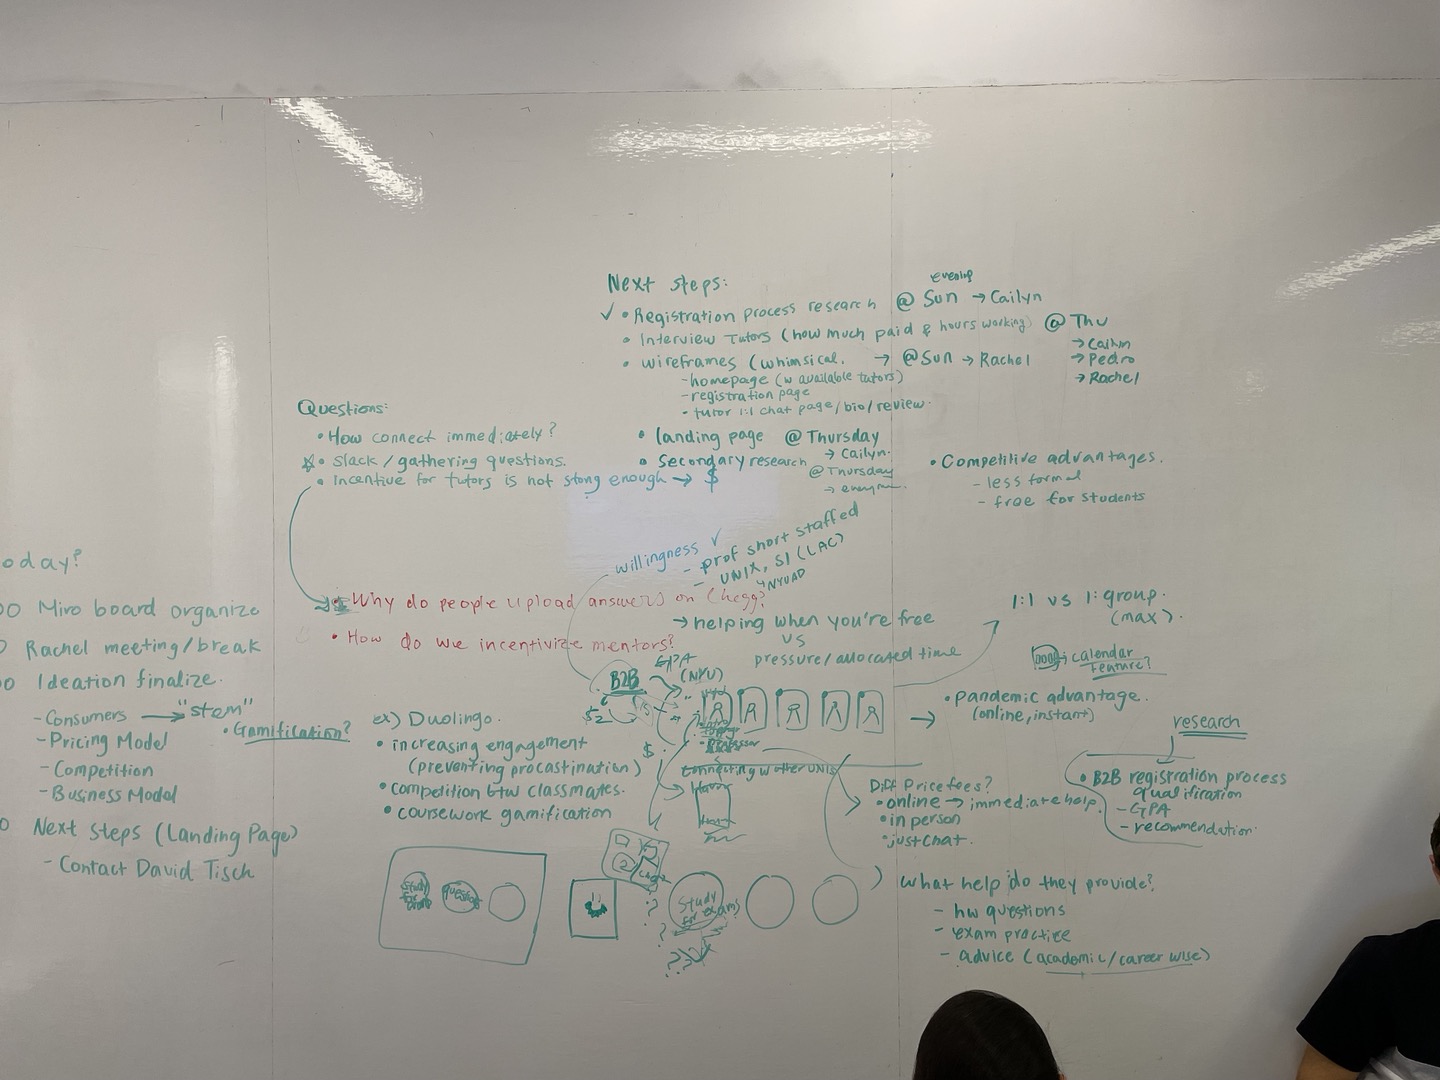 Next steps:
evening
✓ • Registration process research @ Sun → Cailyn
• Interview Tutors (how much paid & hours working) @ Thu
→ Cailyn
→ Pedro
→ Rachel
• wireframes (whimsical. → @Sun → Rachel
- homepage (w available tutors)
- registration page
- tutor 1:1 chat page/bio/review.
• landing page @ Thursday
→ Cailyn.
• Secondary research
@ Thursday
Questions:
• How connect immediately?
• Slack / gathering questions.
• incentive for tutors is not stong enough → $
• Competitive advantages.
- less formal
- free for students
willingness ✓
- prof short staffed
- UNIX, SI (LAC)
↳ NYUAD
• Why do people upload answers on Chegg?
• How do we incentivize mentors?
→ helping when you're free
vs
pressure/allocated time
1:1 vs 1:group.
(max).
calendar
feature?
oday?
00 Miro board organize
Rachel meeting/break
00 Ideation finalize.
- Consumers → "stem"
- Pricing Model
- Competition
- Business Model
0 Next Steps (Landing Page)
- Contact David Tisch
• Gamification?
ex) Duolingo.
• increasing engagement
(preventing procastination)
• competition btw classmates.
• coursework gamification
B2B
GPA
(NYU)
$2
$
professor
connecting w other UNIs
• Pandemic advantage.
(online, instant)
research
• B2B registration process
qualification
- GPA
- recommendation.
Diff Price fees?
• online → immediate help.
• in person
• just chat.
what help do they provide?
- hw questions
- exam practice
- advice (academic/career wise)
study
for exam
question
Study
for exams
? ? ??